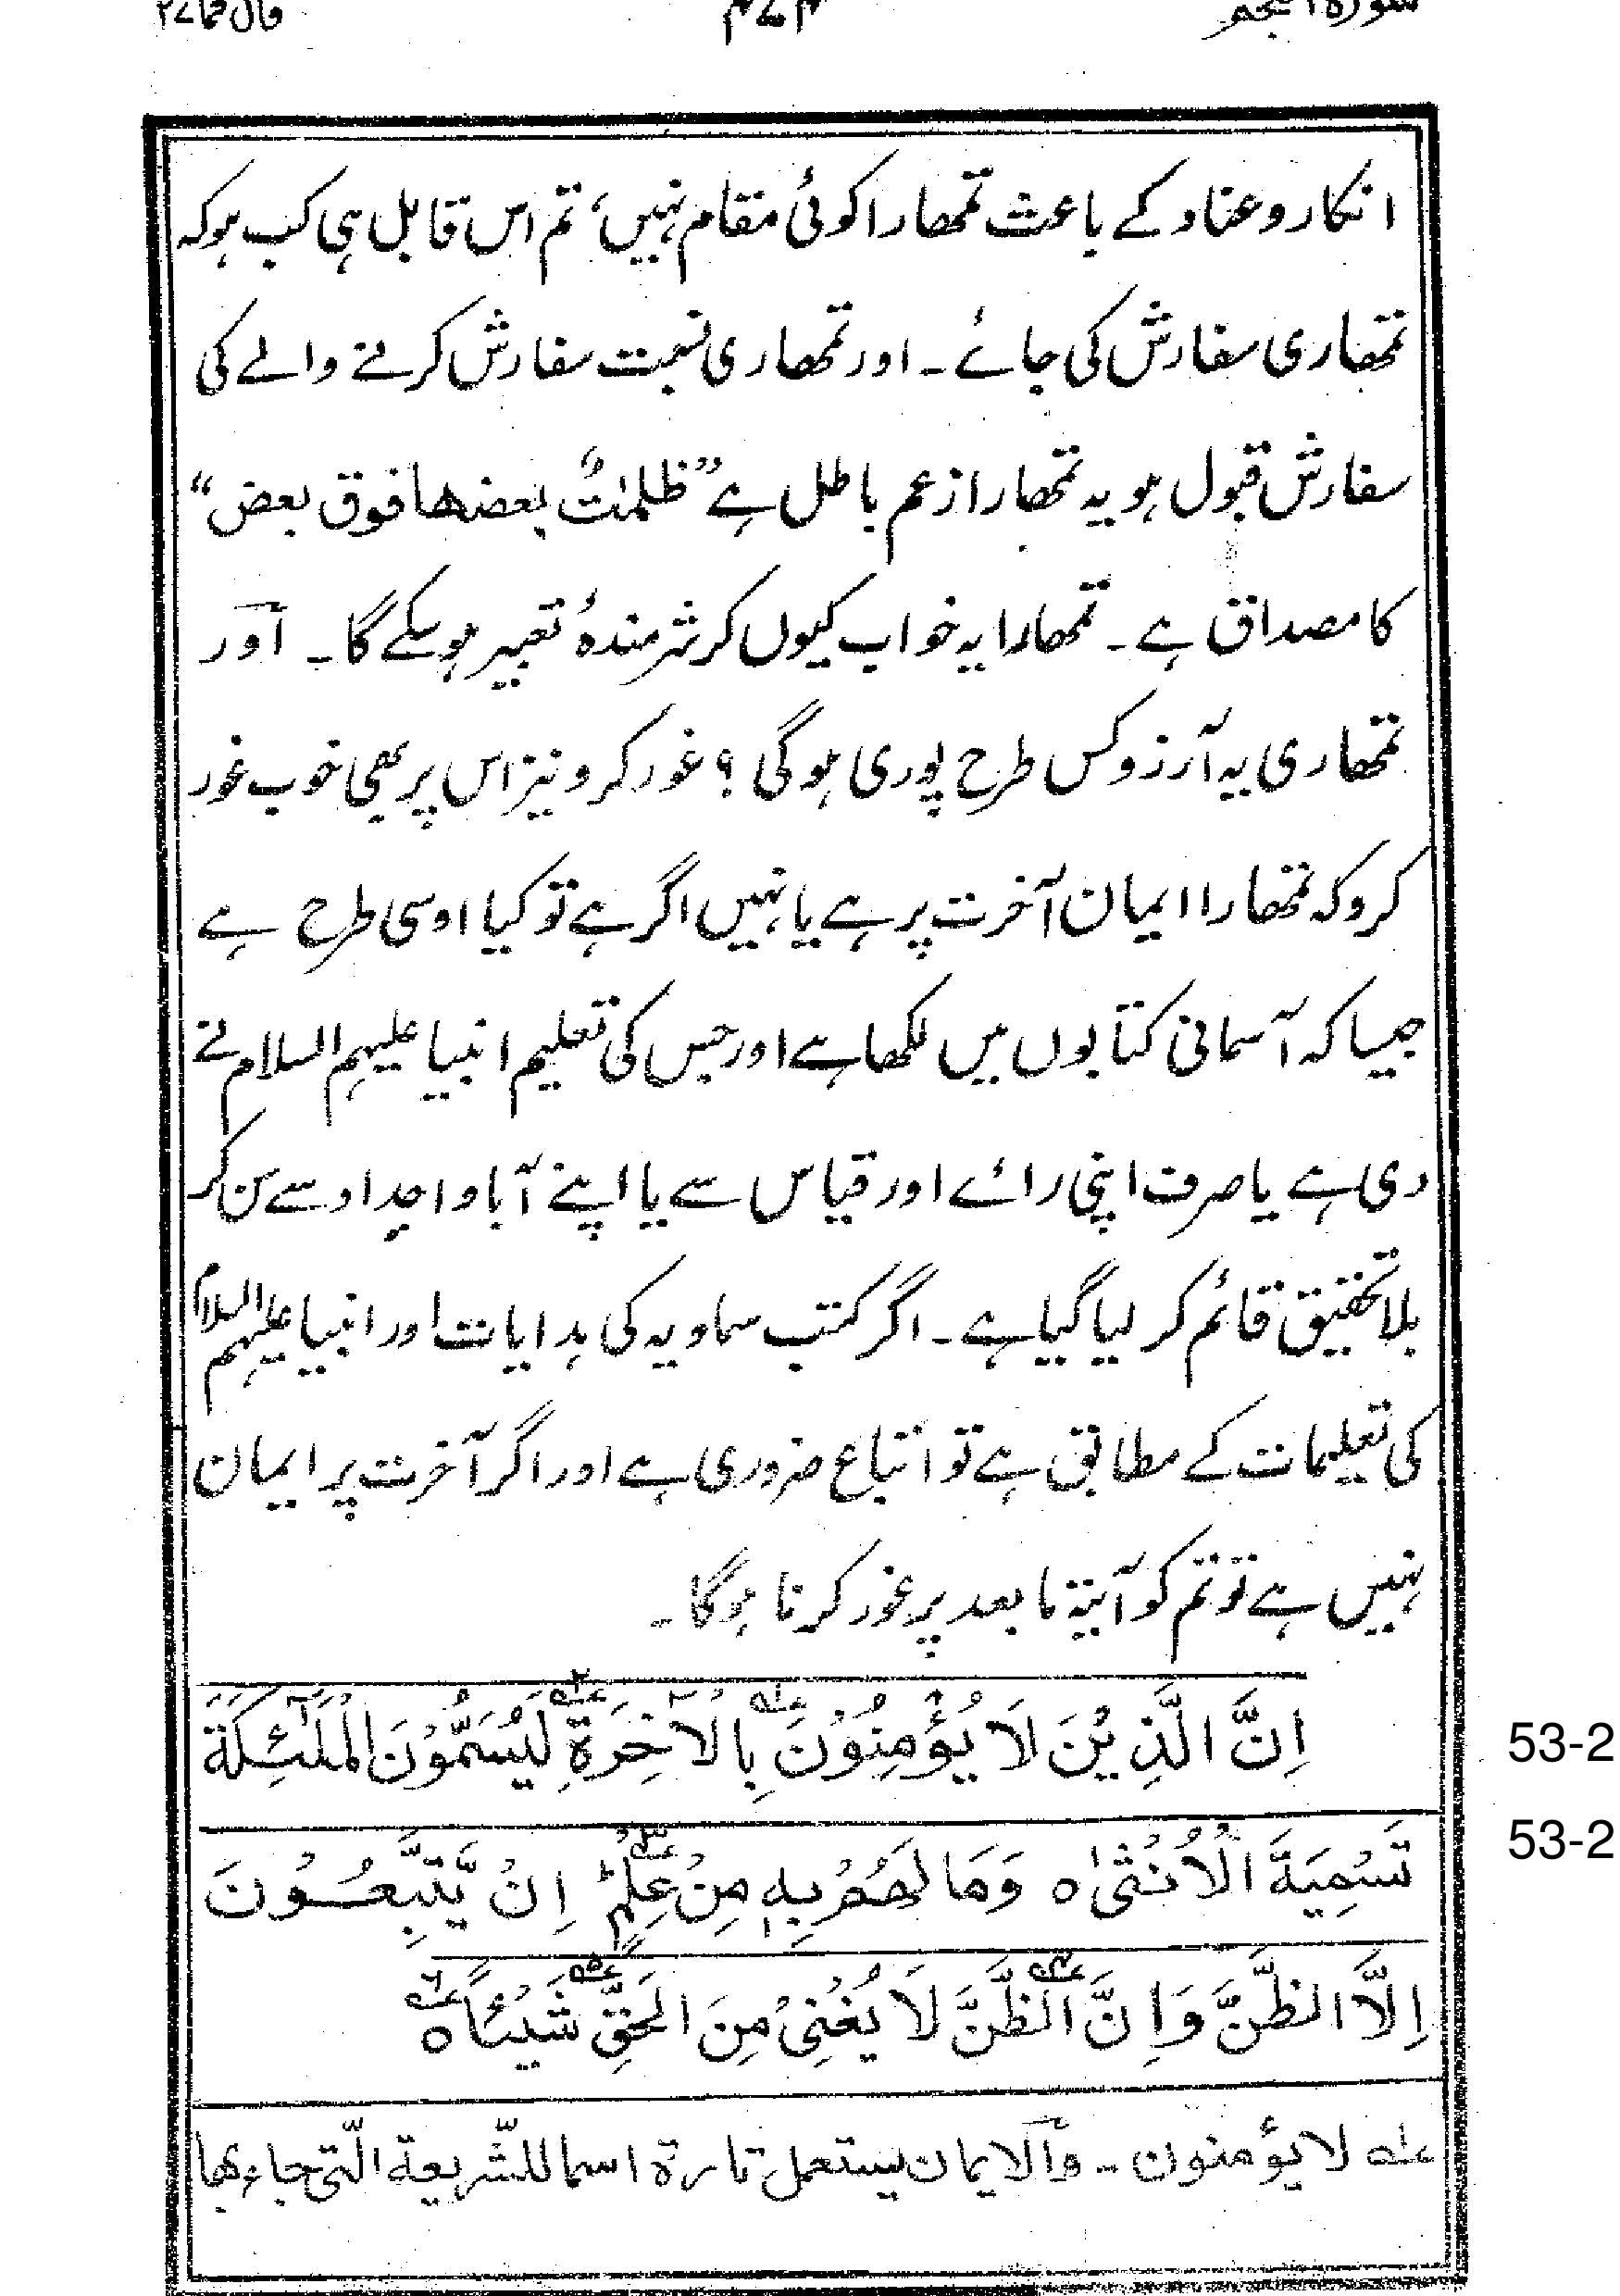 سورة النجم ۴۷۴ قال فما ۲۷
انکار و عناد کے باعث تمھارا کوئی مقام نہیں، تم اس قابل ہی کب ہو کہ
تمھاری سفارش کی جائے۔ اور تمھاری نسبت سفارش کرنے والے کی
سفارش قبول ہو یہ تمھارا زعم باطل ہے ”ظلمٰتٌ بعضھا فوق بعض“
کا مصداق ہے۔ تمھارا یہ خواب کیوں کر شرمندۂ تعبیر ہو سکے گا۔ اور
تمھاری یہ آرزو کس طرح پوری ہو گی ؟ غور کرو نیز اس پر بھی خوب غور
کرو کہ تمھارا ایمان آخرت پر ہے یا نہیں اگر ہے تو کیا اوسی طرح ہے
جیسا کہ آسمانی کتابوں میں لکھا ہے اور جس کی تعلیم انبیا علیہم السلام نے
دی ہے یا صرف اپنی رائے اور قیاس سے یا اپنے آبا و اجداد سے سن کر
بلا تحقیق قائم کر لیا گیا ہے۔ اگر کتب سماویہ کی ہدایات اور انبیا علیہم السلام
کی تعلیمات کے مطابق ہے تو اتباع ضروری ہے اور اگر آخرت پر ایمان
نہیں ہے تو تم کو آیتہ ما بعد پر غور کرنا ہوگا۔
اِنَّ الَّذِيْنَ لَا يُؤْمِنُوْنَ ؁۱ بِالْاٰخِرَةِ ؁۲ لَيُسَمُّوْنَ الْمَلٰٓئِكَةَ
53-2
تَسْمِيَةَ الْاُنْثٰى ہ وَمَا لَهُمْ بِهٖ مِنْ عِلْمٍ ؁۳ ؕ اِنْ يَّتَّبِعُوْنَ
53-2
اِلَّا الظَّنَّ وَاِنَّ الظَّنَّ ؁۴ لَا يُغْنِيْ مِنَ الْحَقِّ ؁۵ شَيْئًا ؁۶ ہ
؁۱ لا يؤمنون۔ والايمان يستعمل تارة اسما للشّريعة الّتی جاء بها